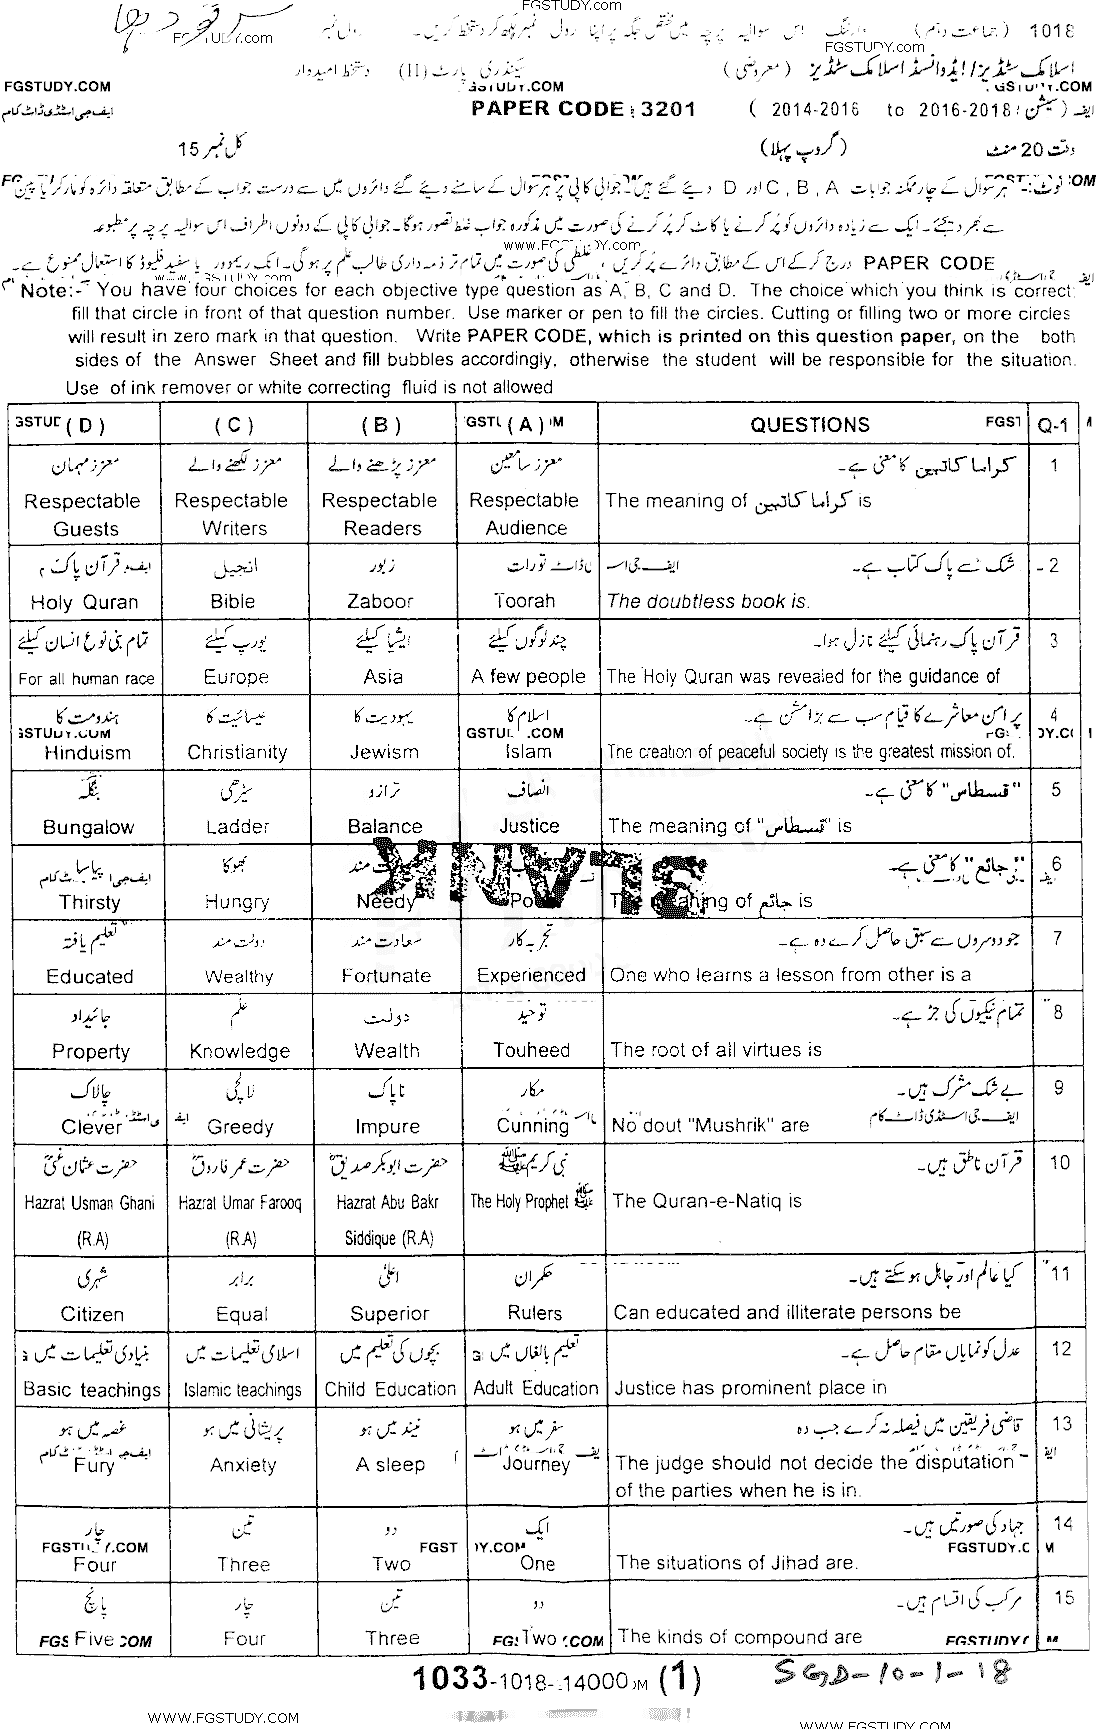 FGSTUDY.COM
1018 (جماعت دہم) وارننگ اس سوالیہ پرچہ میں مختص جگہ پر اپنا رول نمبر لکھ کر دستخط کریں۔ رول نمبر
FGSTUDY.COM
اسلامک سٹڈیز / ایڈوانسڈ اسلامک سٹڈیز (معروضی) سیکنڈری پارٹ (II) دستخط امیدوار
FGSTUDY.COM
PAPER CODE : 3201 (سیشن 2014-2016 to 2016-2018)
ایف جی اسٹڈی ڈاٹ کام
وقت 20 منٹ (گروپ پہلا) کل نمبر 15
نوٹ:۔ ہر سوال کے چار ممکنہ جوابات A ، B ، C اور D دیئے گئے ہیں۔ جوابی کاپی پر ہر سوال کے سامنے دیئے گئے دائروں میں سے درست جواب کے مطابق متعلقہ دائرہ کو مارکر یا پین
سے بھر دیجئے۔ ایک سے زیادہ دائروں کو پُر کرنے یا کاٹ کر پُر کرنے کی صورت میں مذکورہ جواب غلط تصور ہوگا۔ جوابی کاپی کے دونوں اطراف اس سوالیہ پرچہ پر مطبوعہ
www.FGSTUDY.COM
PAPER CODE درج کرکے اس کے مطابق دائرے پُر کریں، غلطی کی صورت میں تمام تر ذمہ داری طالب علم پر ہوگی۔ انک ریموور یا سفید فلیوڈ کا استعمال ممنوع ہے۔
Note:- You have four choices for each objective type question as A, B, C and D. The choice which you think is correct;
fill that circle in front of that question number. Use marker or pen to fill the circles. Cutting or filling two or more circles
will result in zero mark in that question. Write PAPER CODE, which is printed on this question paper, on the both
sides of the Answer Sheet and fill bubbles accordingly, otherwise the student will be responsible for the situation.
Use of ink remover or white correcting fluid is not allowed
(D) (C) (B) (A) QUESTIONS Q-1
معزز مہمان معزز لکھنے والے معزز پڑھنے والے معزز سامعین کراما کاتبین کا معنی ہے۔ 1
Respectable Respectable Respectable Respectable The meaning of کراما کاتبین is
Guests Writers Readers Audience
قرآن پاک انجیل زبور تورات شک سے پاک کتاب ہے۔ 2
Holy Quran Bible Zaboor Toorah The doubtless book is.
تمام بنی نوع انسان کیلئے یورپ کیلئے ایشیا کیلئے چند لوگوں کیلئے قرآن پاک رہنمائی کیلئے نازل ہوا۔ 3
For all human race Europe Asia A few people The Holy Quran was revealed for the guidance of
ہندومت کا عیسائیت کا یہودیت کا اسلام کا پر امن معاشرے کا قیام سب سے بڑا مشن ہے۔ 4
Hinduism Christianity Jewism Islam The creation of peaceful society is the greatest mission of.
بنگلہ سیڑھی ترازو انصاف "قسطاس" کا معنی ہے۔ 5
Bungalow Ladder Balance Justice The meaning of "قسطاس" is
پیاسا بھوکا "جائع" کا معنی ہے۔ 6
BLANK
Thirsty Hungry Needy The meaning of جائع is
تعلیم یافتہ دولت مند سعادت مند تجربہ کار جو دوسروں سے سبق حاصل کرے وہ ہے۔ 7
Educated Wealthy Fortunate Experienced One who learns a lesson from other is a
جائیداد علم دولت توحید تمام نیکیوں کی جڑ ہے۔ 8
Property Knowledge Wealth Touheed The root of all virtues is
چالاک لالچی ناپاک مکار بے شک مشرک ہیں۔ 9
ایف جی اسٹڈی ڈاٹ کام
Clever Greedy Impure Cunning No dout "Mushrik" are
حضرت عثمان غنیؓ حضرت عمر فاروقؓ حضرت ابوبکر صدیقؓ نبی کریم ﷺ قرآن ناطق ہیں۔ 10
Hazrat Usman Ghani Hazrat Umar Farooq Hazrat Abu Bakr The Holy Prophet ﷺ The Quran-e-Natiq is
(R.A) (R.A) Siddique (R.A)
شہری برابر اعلیٰ حکمران کیا عالم اور جاہل ہو سکتے ہیں۔ 11
Citizen Equal Superior Rulers Can educated and illiterate persons be
بنیادی تعلیمات میں اسلامی تعلیمات میں بچوں کی تعلیم میں تعلیم بالغاں میں عدل کو نمایاں مقام حاصل ہے۔ 12
Basic teachings Islamic teachings Child Education Adult Education Justice has prominent place in
غصہ میں ہو پریشانی میں ہو نیند میں ہو سفر میں ہو قاضی فریقین میں فیصلہ نہ کرے جب وہ 13
Fury Anxiety A sleep Journey The judge should not decide the disputation
of the parties when he is in.
چار تین دو ایک جہاد کی صورتیں ہیں۔ 14
FGSTUDY.COM
Four Three Two One The situations of Jihad are.
پانچ چار تین دو مرکب کی اقسام ہیں۔ 15
Five Four Three Two The kinds of compound are
1033-1018-14000 (1) SGD-10-1-18
WWW.FGSTUDY.COM
WWW.FGSTUDY.COM